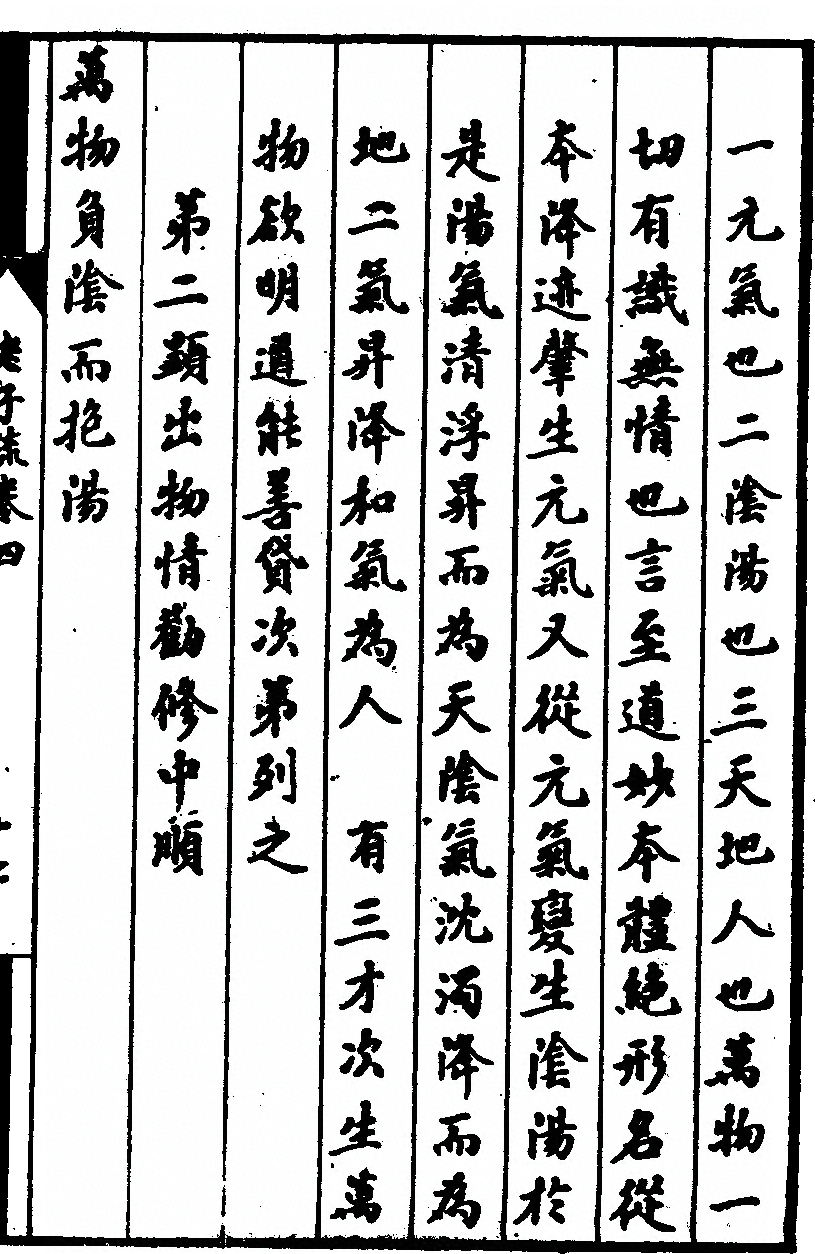 一元氣也二陰陽也三天地人也萬物一
切有識無情也言至道妙本體絕形名從
本降迹肇生元氣又從元氣變生陰陽於
是陽氣清浮昇而為天陰氣沈濁降而為
地二氣昇降和氣為人 有三才次生萬
物欲明道能善貸次第列之
第二顯出物情勸修中順
萬物負陰而抱陽
老子疏卷四